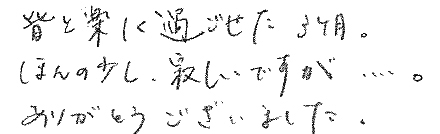 皆と楽しく過ごせた3ケ月。
ほんの少し、寂しいですが….。
ありがとうございました.